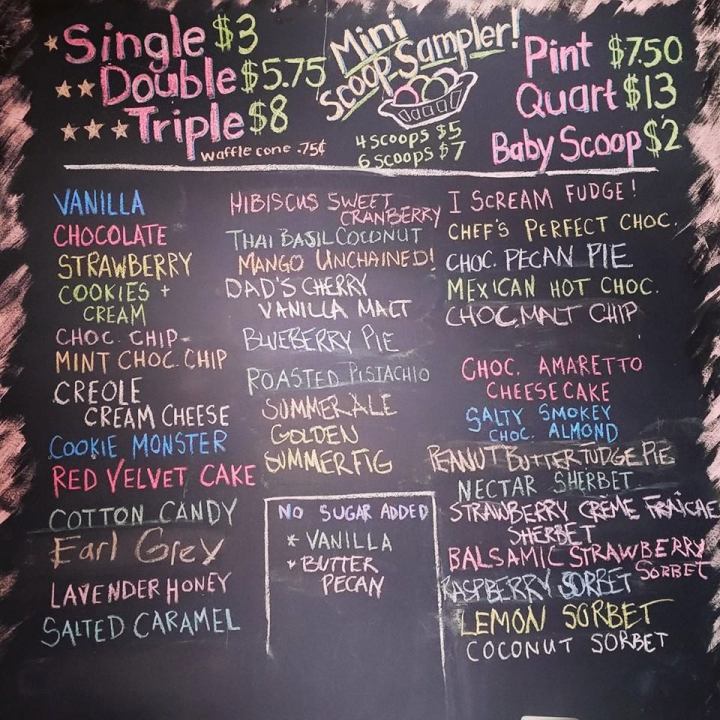 Single $3
Double $5.75
Triple $8
Waffle cone .75¢
Mini
Scoop Sampler!
4 scoops $5
6 scoops $7
Pint $7.50
Quart $13
Baby Scoop $2
VANILLA
CHOCOLATE
STRAWBERRY
COOKIES +
CREAM
CHOC. CHIP
MINT CHOC. CHIP
CREOLE
CREAM CHEESE
COOKIE MONSTER
RED VELVET CAKE
COTTON CANDY
Earl Grey
LAVENDER HONEY
SALTED CARAMEL
HIBISCUS SWEET
CRANBERRY
THAI BASIL COCONUT
MANGO UNCHAINED!
DAD'S CHERRY
VANILLA MALT
BLUEBERRY PIE
ROASTED PISTACHIO
SUMMER ALE
GOLDEN
SUMMER FIG
NO SUGAR ADDED
* VANILLA
* BUTTER
PECAN
I SCREAM FUDGE!
CHEF'S PERFECT CHOC.
CHOC. PECAN PIE
MEXICAN HOT CHOC.
CHOC. MALT CHIP
CHOC. AMARETTO
CHEESECAKE
SALTY SMOKEY
CHOC. ALMOND
PEANUT BUTTER FUDGE PIE
NECTAR SHERBET
STRAWBERRY CRÈME FRAÎCHE
SHERBET
BALSAMIC STRAWBERRY
SORBET
RASPBERRY SORBET
LEMON SORBET
COCONUT SORBET